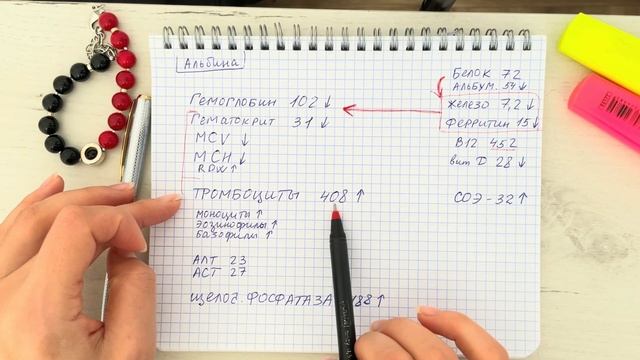 Альбина
Гемоглобин 102 ↓
Гематокрит 31 ↓
MCV ↓
MCH ↓
RDW ↑
Тромбоциты 408 ↑
моноциты ↑
эозинофилы ↑
базофилы ↑
АЛТ 23
АСТ 27
щелоч. фосфатаза 188 ↑
Белок 72
Альбум. 54 ↓
Железо 7,2 ↓
Ферритин 15 ↓
B12 452
вит D 28 ↓
СОЭ - 32 ↑